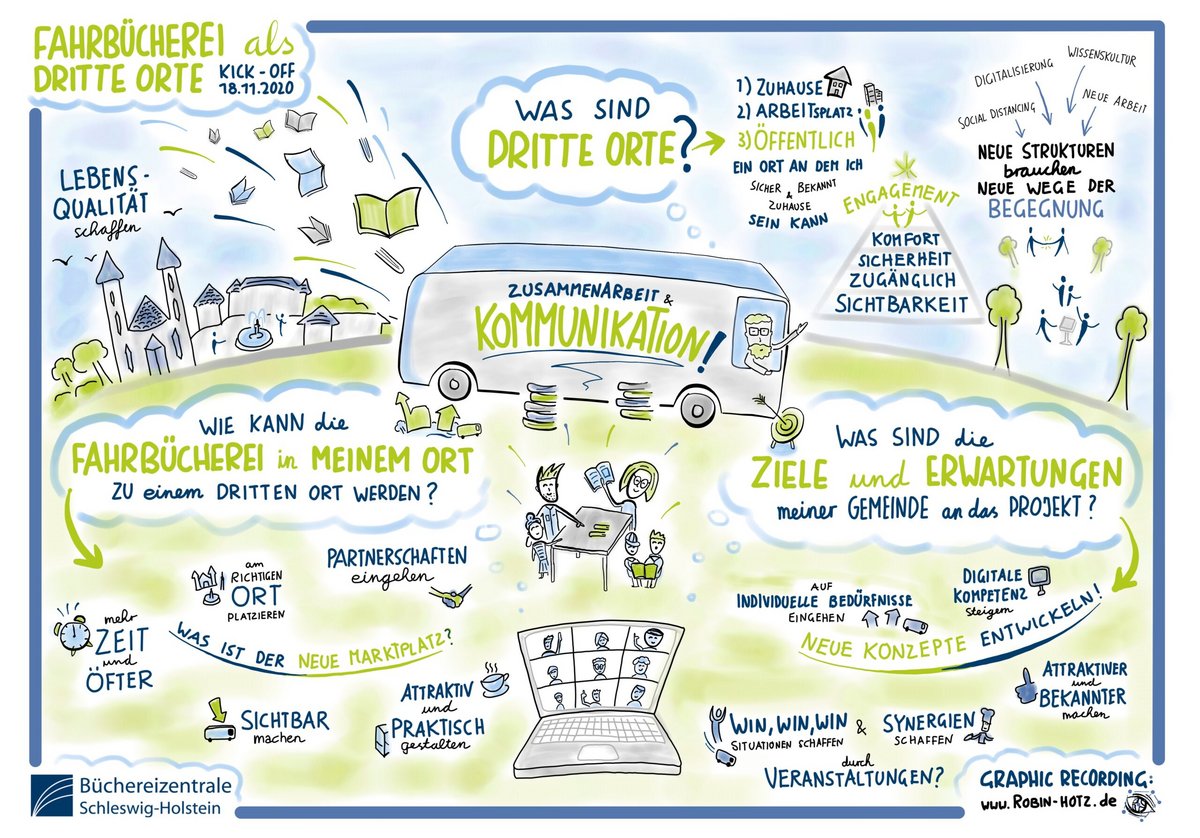 FAHRBÜCHEREI als
DRITTE ORTE
KICK-OFF
18.11.2020
LEBENS-
QUALITÄT
schaffen
WAS SIND
DRITTE ORTE?
1) ZUHAUSE
2) ARBEITSPLATZ
3) ÖFFENTLICH
EIN ORT AN DEM ICH
SICHER & BEKANNT
ZUHAUSE
SEIN KANN
ENGAGEMENT
KOMFORT
SICHERHEIT
ZUGÄNGLICH
SICHTBARKEIT
SOCIAL DISTANCING
DIGITALISIERUNG
WISSENSKULTUR
NEUE ARBEIT
NEUE STRUKTUREN
brauchen
NEUE WEGE DER
BEGEGNUNG
ZUSAMMENARBEIT &
KOMMUNIKATION!
WIE KANN die
FAHRBÜCHEREI in MEINEM ORT
ZU einem DRITTEN ORT WERDEN?
am
RICHTIGEN
ORT
PLATZIEREN
PARTNERSCHAFTEN
eingehen
mehr
ZEIT
und
ÖFTER
WAS IST DER NEUE MARKTPLATZ?
SICHTBAR
machen
ATTRAKTIV
und
PRAKTISCH
gestalten
WAS SIND die
ZIELE und ERWARTUNGEN
meiner GEMEINDE an das PROJEKT?
AUF
INDIVIDUELLE BEDÜRFNISSE
EINGEHEN
DIGITALE
KOMPETENZ
Steigern
NEUE KONZEPTE ENTWICKELN!
ATTRAKTIVER
und
BEKANNTER
machen
WIN, WIN, WIN
SITUATIONEN SCHAFFEN
& SYNERGIEN
SCHAFFEN
durch
VERANSTALTUNGEN?
Büchereizentrale
Schleswig-Holstein
GRAPHIC RECORDING:
www.ROBIN-HOTZ.de